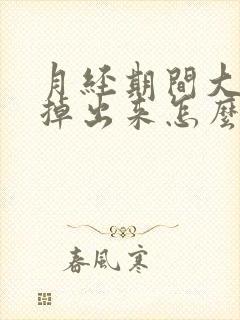 月经期間大
掉出来怎麼
春風寒